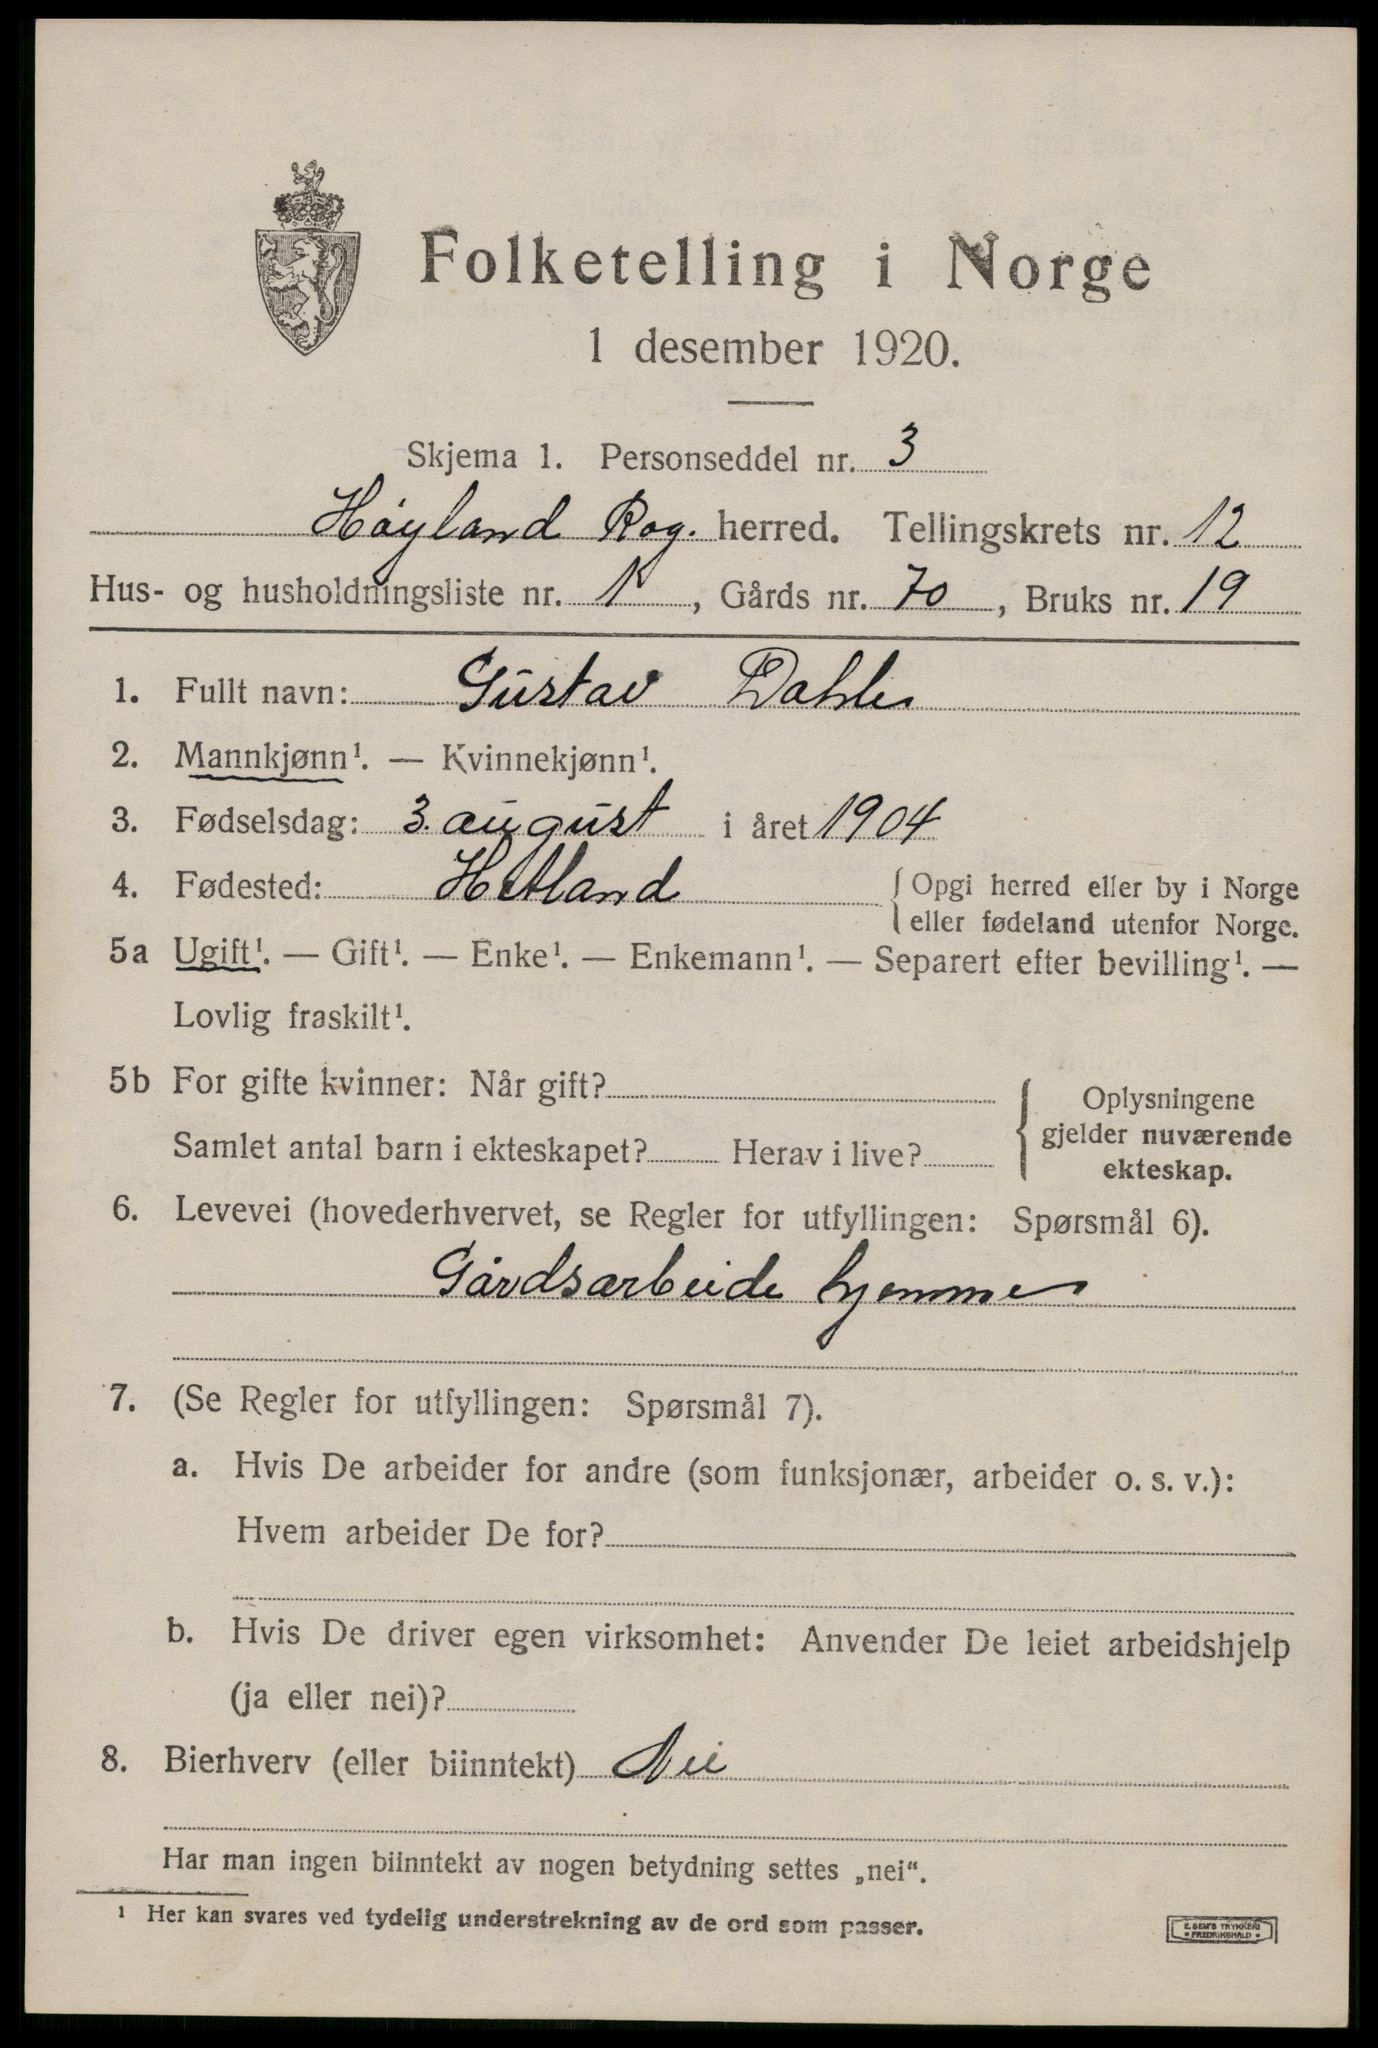 Folketelling i Norge
1 desember 1920.
Skjema 1. Personseddel nr. 3
Høyland Rog. herred. Tellingskrets nr. 12
Hus- og husholdningsliste nr. 1, Gårds nr. 70, Bruks nr. 19
1. Fullt navn: Gustav Dahle
2. Mannkjønn¹. — Kvinnekjønn¹.
3. Fødselsdag: 3. august i året 1904
4. Fødested: Hetland { Opgi herred eller by i Norge
eller fødeland utenfor Norge.
5a Ugift¹. — Gift¹. — Enke¹. — Enkemann¹. — Separert efter bevilling¹. —
Lovlig fraskilt¹.
5b For gifte kvinner: Når gift? { Oplysningene
gjelder nuværende
Samlet antal barn i ekteskapet? Herav i live?
ekteskap.
6. Levevei (hovederhvervet, se Regler for utfyllingen: Spørsmål 6).
Gårdsarbeide hjemme
7. (Se Regler for utfyllingen: Spørsmål 7).
a. Hvis De arbeider for andre (som funksjonær, arbeider o. s. v.):
Hvem arbeider De for?
b. Hvis De driver egen virksomhet: Anvender De leiet arbeidshjelp
(ja eller nei)?
8. Bierhverv (eller biinntekt) Nei
Har man ingen biinntekt av nogen betydning settes „nei“.
¹ Her kan svares ved tydelig understrekning av de ord som passer.
E. SEM'S TRYKKERI
• FREDRIKSHALD •